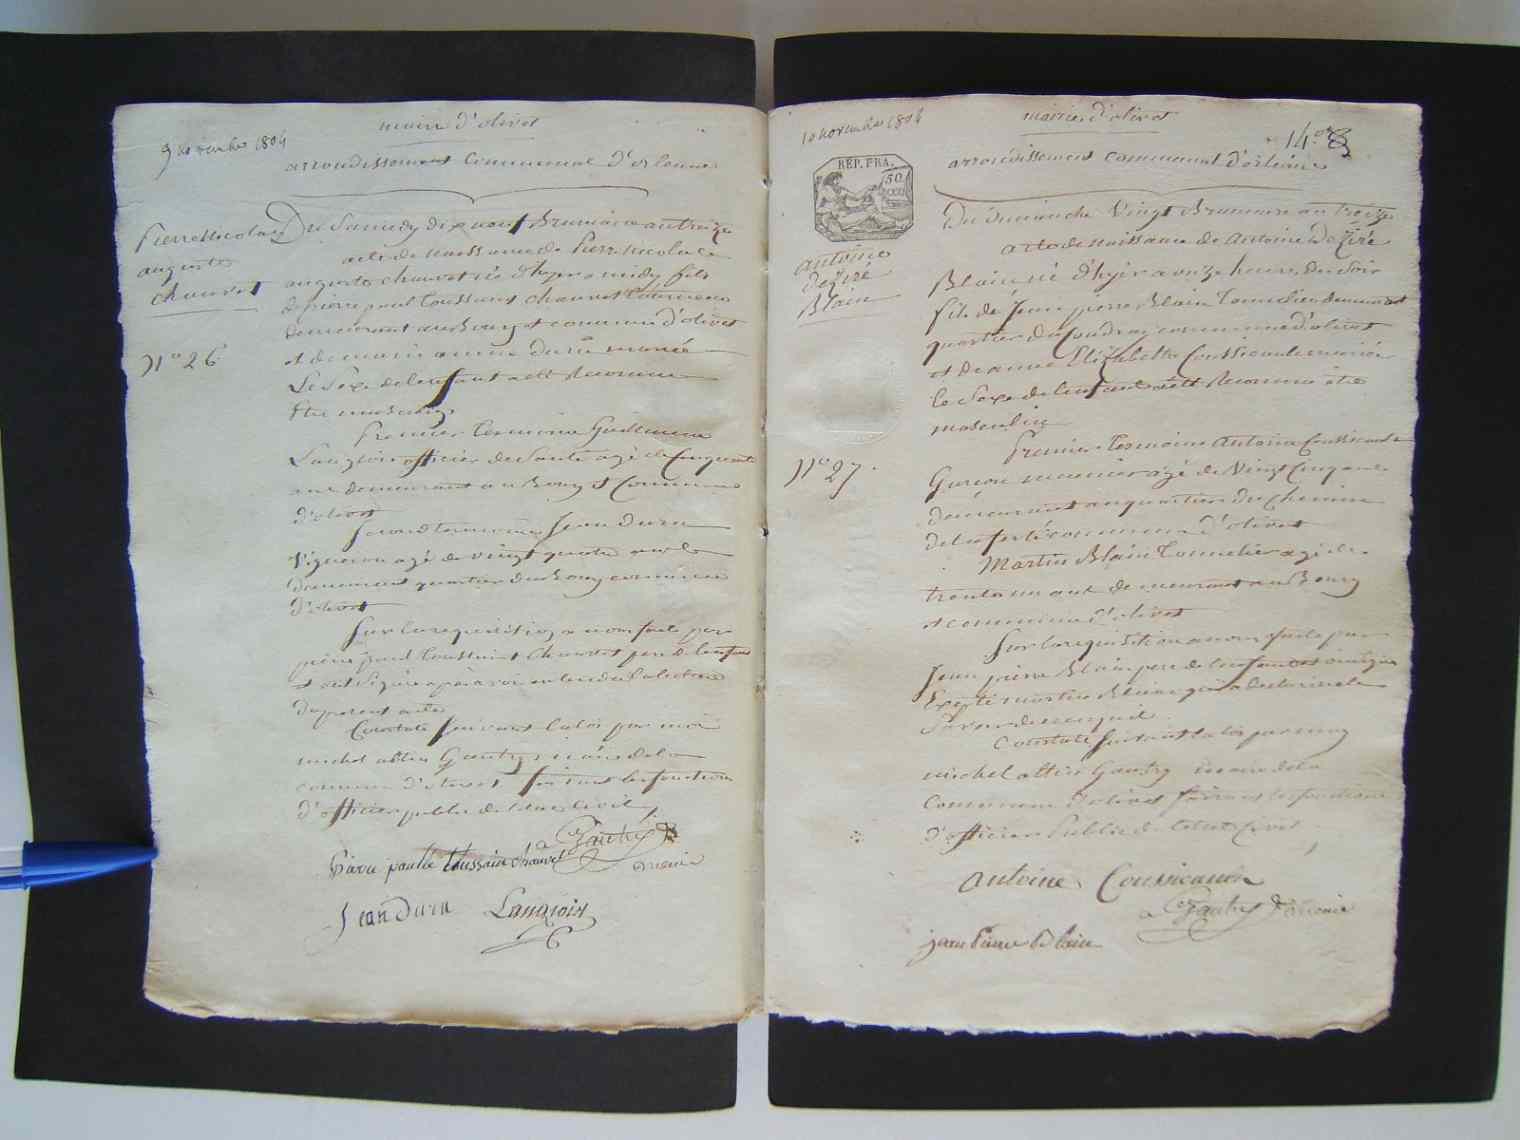 mairie d'olivet
9 novembre 1804
arrondissement Communal d'orleans
Pierre Nicolas
auguste
chauvet
N° 26
Du Samedy dixneuf Brumaire an treize
acte de naissance de Pierre Nicolas
auguste chauvet né d'hyer a midy fils
de pierre paul toussaint chauvet
demeurant au Bourg et commune d'olivet
et de marie anne duru mariés
Le Sexe de lenfant a été Reconnu
Etre masculin
Premier temoin Guillaume
Langlois officier de Santé agé de Cinquante
ans demeurant au Bourg et Commune
d'olivet
Second temoin Jean Duru
Vigneron agé de vingt quatre ans
demeurant quartier du Bourg commune
d'olivet
Sur la requisition a nous faite par
pierre paul toussaint chauvet pere de lenfant
et ont signé après avoir entendu la lecture
du present acte
Constaté suivant la loi par moi
michel altin Gautry maire de la
commune d'olivet faisant les fonctions
d'officier public de letat civil
Gautry
maire
Piere paul toussain chauvet
Jean Duru Langlois
mairie d'olivet
10 novembre 1804
14.
arrondissement communal d'orleans
REP. FRA.
50
antoine
deziré
Blain
N° 27.
Du dimanche Vingt Brumaire an treize
acte de naissance de antoine Deziré
Blain né d'hyer a onze heures du Soir
fils de Jean pierre Blain tonnelier demeurant
quartier du Coudray commune d'olivet
et de anne Elizabeth Coussicault mariés
le Sexe de lenfant a été Reconnu etre
masculin
Premier temoin Antoine Coussicault
Garcon agé de Vingt Cinq ans
demeurant au quartier du Chemin
de la ferté commune d'olivet
Martin Blain tonnelier agé de
trente un ans demeurant au Bourg
et commune d'olivet
Sur la requisition a nous faite par
Jean pierre Blain pere de lenfant et ont signé
Excepté martin Blain qui a declaré ne le
Savoir de ce enquit
Constaté suivant la loi par moy
michel altin Gautry maire de la
Commune d'olivet faisant les fonctions
d'officier Public de letat Civil
antoine Coussicault
Gautry maire
jean Pierre Blain